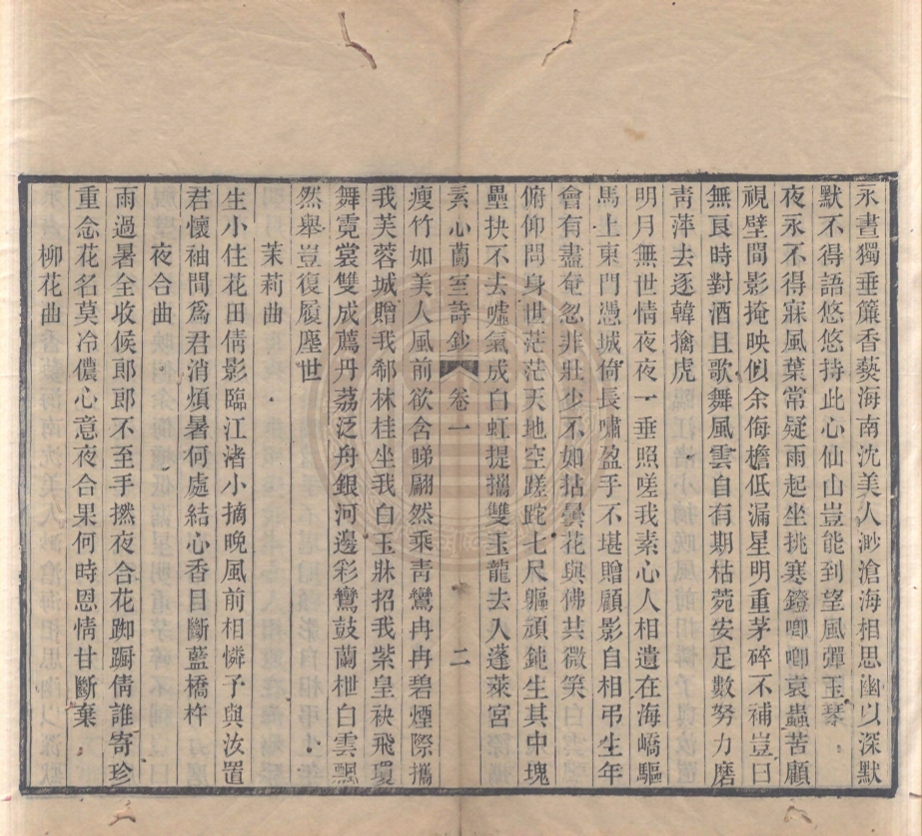 永晝獨垂簾香爇海南沈美人渺滄海相思幽以深默
默不得語悠悠持此心仙山豈能到望風彈玉琴
夜永不得寐風葉常疑雨起坐挑寒鐙唧唧哀蟲苦顧
視壁間影掩映似余侮檐低漏星明重茅碎不補豈曰
無良時對酒且歌舞風雲自有期枯菀安足數努力磨
靑萍去逐韓擒虎
明月無世情夜夜一垂照嗟我素心人相遺在海嶠驅
馬上東門憑城倚長嘯盈手不堪贈顧影自相弔生年
會有盡奄忽非壯少不如拈曇花與佛共微笑
俯仰問身世茫茫天地空蹉跎七尺軀頑鈍生其中塊
壘抉不去噓氣成白虹提攜雙玉龍去入蓬萊宮
素心蘭室詩鈔 卷一 二
瘦竹如美人風前欲含睇翩然乘靑鸞冉冉碧煙際攜
我芙蓉城贈我郗林桂坐我白玉牀招我紫皇袂飛瓊
舞霓裳雙成薦丹荔泛舟銀河邊彩鸞鼓蘭枻白雲飄
然舉豈復履塵世
茉莉曲
生小住花田倩影臨江渚小摘晚風前相憐予與汝置
君懷袖間爲君消煩暑何處結心香目斷藍橋杵
夜合曲
雨過暑全收候郎郎不至手撚夜合花踟蹰倩誰寄珍
重念花名莫冷儂心意夜合果何時恩情甘斷棄
柳花曲